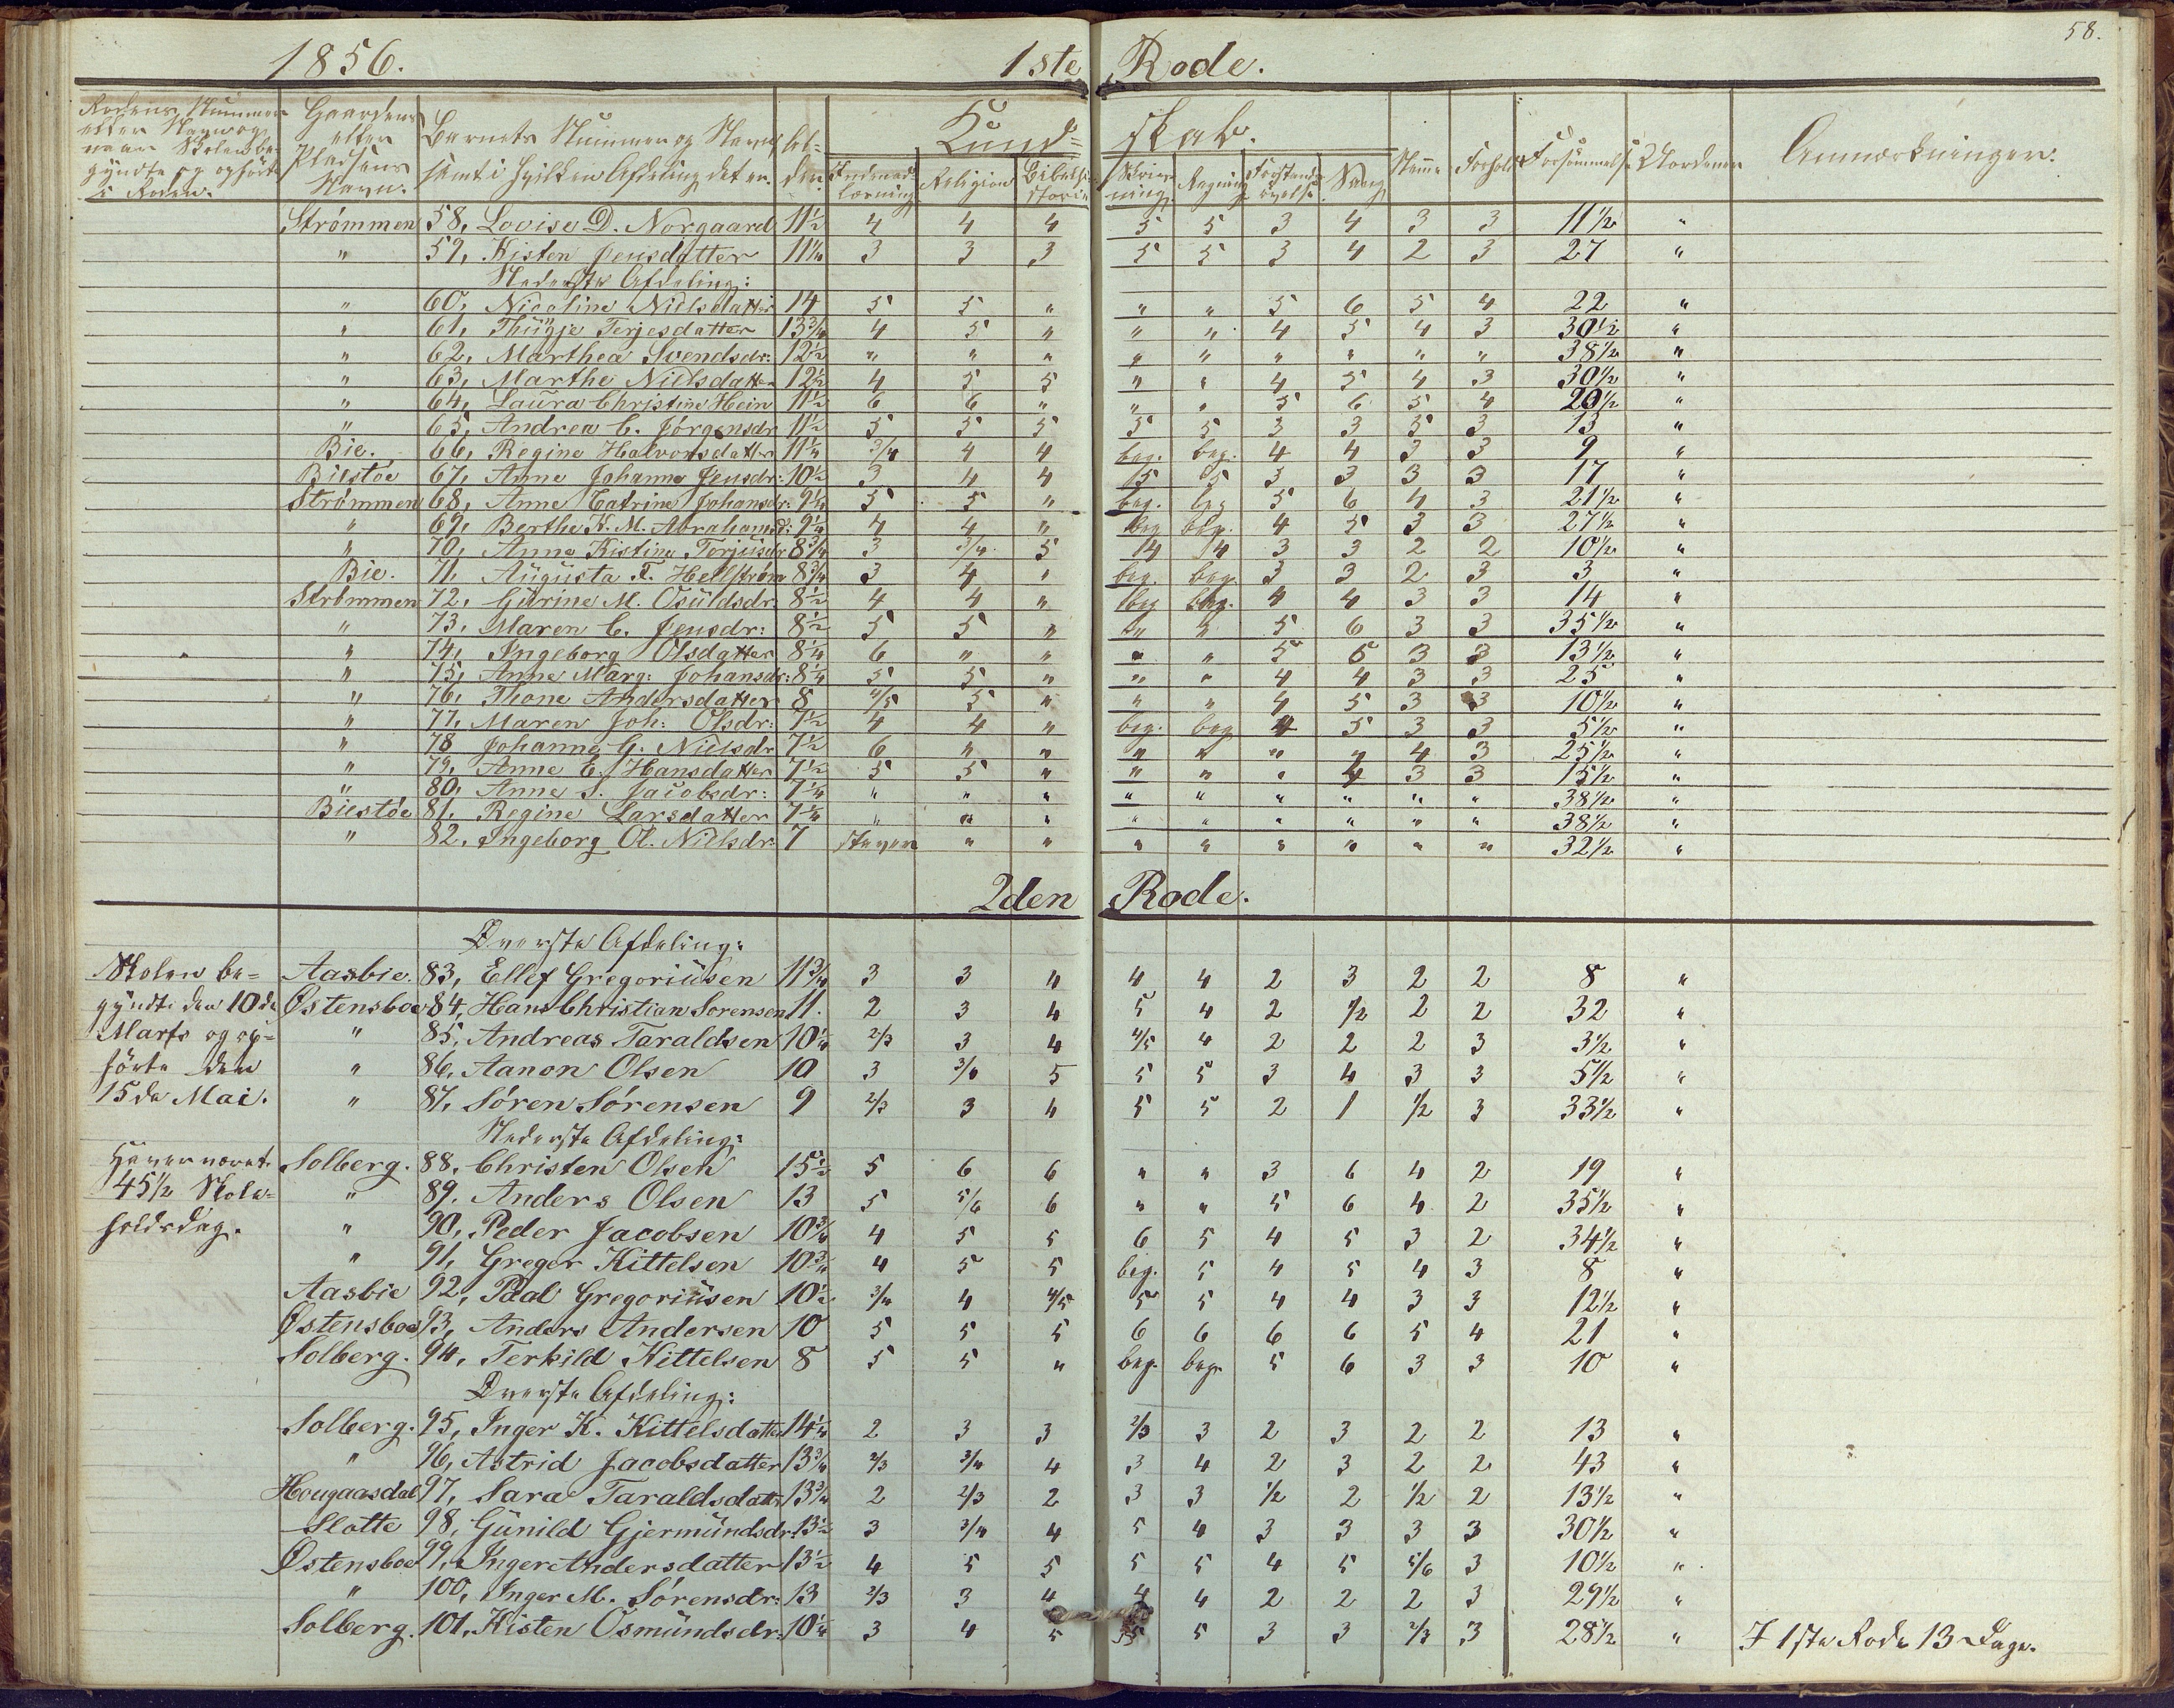 58.
1856. 1ste Rode.
Rodens Nummer eller Navn og naar Skolen begyndte og ophørte i Roden. Gaardens eller Pladsens Navn. Barnets Nummer og Navn, samt i hvilken Afdeling det er. Alder. Kundskab. Anmærkninger.
Indenadlæsning Religion Bibelhistorie Skrivning Regning Forstandsøvelse Sang Nemme Forhold Forsømmelse Uordener
Strømmen 58, Lovise D. Norgaard 11½ 4 4 4 5 5 3 4 3 3 11½ "
" 59, Kisten Jensdatter 11¼ 3 3 3 5 5 3 4 2 3 27 "
Nederste Afdeling:
" 60, Nicoline Nielsdatter 14 5 5 " " " 5 6 5 4 22 "
" 61, Thügje Terjesdatter 13¾ 4 5 " " " 4 5 4 3 30½ "
" 62, Marthea Svendsdr: 12½ " " " " " " " " " 38½ "
" 63, Marthe Nielsdatter 12½ 4 5 5 " " 4 5 4 3 30½ "
" 64, Laura Christine Hein 11½ 6 6 " " " 5 6 5 4 20½ "
" 65, Andrea C. Jörgensdr 11½ 5 5 5 5 5 3 3 5 3 13 "
Bie. 66, Regine Halvorsdatter 11¼ 3/4 4 4 beg. beg. 4 4 3 3 9 "
Biestøe 67, Anne Johanne Jensdr: 10½ 3 4 4 5 5 3 3 3 3 17 "
Strømmen 68, Anne Catrine Johansdr: 9½ 5 5 " beg. beg 5 6 4 3 21½ "
" 69, Berthe K. M. Abrahamsd: 9¼ 4 4 " beg beg. 4 5 3 3 27½ "
" 70, Anne Kistine Terjusdr 8¾ 3 3/4 5 4 4 3 3 2 2 10½ "
Bie. 71, Augusta F. Hellström 8¾ 3 4 " beg. beg. 3 3 2 3 3 "
Strömmen 72, Gurine M. Osuldsdr. 8½ 4 4 " beg beg. 4 4 3 3 14 "
" 73, Maren C. Jensdr: 8½ 5 5 " " " 5 6 3 3 35½ "
" 74, Ingeborg Olsdatter 8¼ 6 " " " " 5 6 3 3 13½ "
" 75, Anne Marg: Johansdr: 8¼ 5 5 " " " 4 4 3 3 25 "
" 76, Thone Andersdatter 8 4/5 5 " " " 4 5 3 3 10½ "
" 77, Maren Joh: Olsdr: 7½ 4 4 " beg. beg 4 5 3 3 5½ "
" 78 Johanne G. Nielsdr 7½ 6 " " " " " " 4 3 25½ "
" 79, Anne E. Hansdatter 7½ 5 5 " " " " 4 3 3 15½ "
" 80, Anne S. Jacobsdr: 7¼ " " " " " " " " " 38½ "
Biestöe 81, Regine Larsdatter 7¼ " " " " " " " " " 38½ "
" 82, Ingeborg Ol. Nielsdr: 7 staver " " " " " " " " 32½ "
2den Rode.
Øverste Afdeling:
Skolen be= Aasbie. 83, Ellef Gregoriüsen 11¾ 3 3 4 4 4 2 3 2 2 8 "
gyndte den 10de Østensboe 84, Hans Christian Sorensen 11. 2 3 4 5 4 2 1/2 2 2 32 "
Marts og op= " 85, Andreas Taraldsen 10¼ 2/3 3 4 4/5 4 2 2 2 3 3½ "
hörte den " 86, Aanon Olsen 10 3 3/4 5 5 5 3 4 3 3 5½ "
15de Mai. " 87, Sören Sörensen 9 2/3 3 4 5 5 2 1 1/2 3 33½ "
Nederste Afdeling:
Her er været Solberg. 88, Christen Olsen 15½ 5 6 6 " " 3 6 4 2 19 "
45½ Skole= " 89. Anders Olsen 13 5 5/6 6 " " 5 6 4 2 35½ "
holdsdag. " 90, Peder Jacobsen 10¾ 4 5 5 6 5 4 5 3 2 34½ "
" 91, Greger Kittelsen 10¾ 4 5 5 beg. 5 4 5 4 3 8 "
Aasbie 92, Paal Gregoriüsen 10½ 3/4 4 4/5 5 5 4 4 3 3 12½ "
Østensboe 93, Anders Andersen 10 5 5 5 6 6 6 6 5 4 21 "
Solberg. 94, Terkild Kittelsen 8 5 5 " beg. beg. 5 6 3 3 10 "
Øverste Afdeling:
Solberg. 95, Inger K. Kittelsdatter 14¼ 2 3 3 2/3 3 2 3 2 2 13 "
" 96, Astrid Jacobsdatter 13¾ 2/3 3/4 4 3 4 2 3 2 2 43 "
Hougaasdal 97, Sara Taraldsdatter 13¾ 2 2/3 2 3 3 1/2 2 1/2 2 13½ "
Slotte 98, Günild Gjermündsdr. 13½ 3 3/4 4 5 4 3 3 3 3 30½ "
Østensboe 99, Inger Andersdatter 13½ 4 5 5 5 5 4 5 5/6 3 10½ "
" 100, Inger M. Sörensdr: 13 2/3 3 4 4 4 2 2 2 3 29½ "
Solberg. 101, Kisten Osmündsdr: 10¼ 3 4 5 5 5 3 3 2/3 3 28½ " I 1ste Rode 13 Dage.